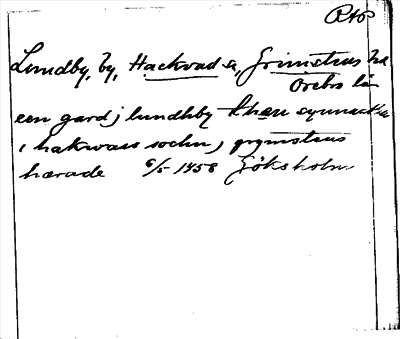 RAP
Lundby, by, Hackvad sn, Grimstens hd
Örebro län
een gard j lundhby
i hakwass sochn j grymstens
hærade 6/5 1458 Göksholm